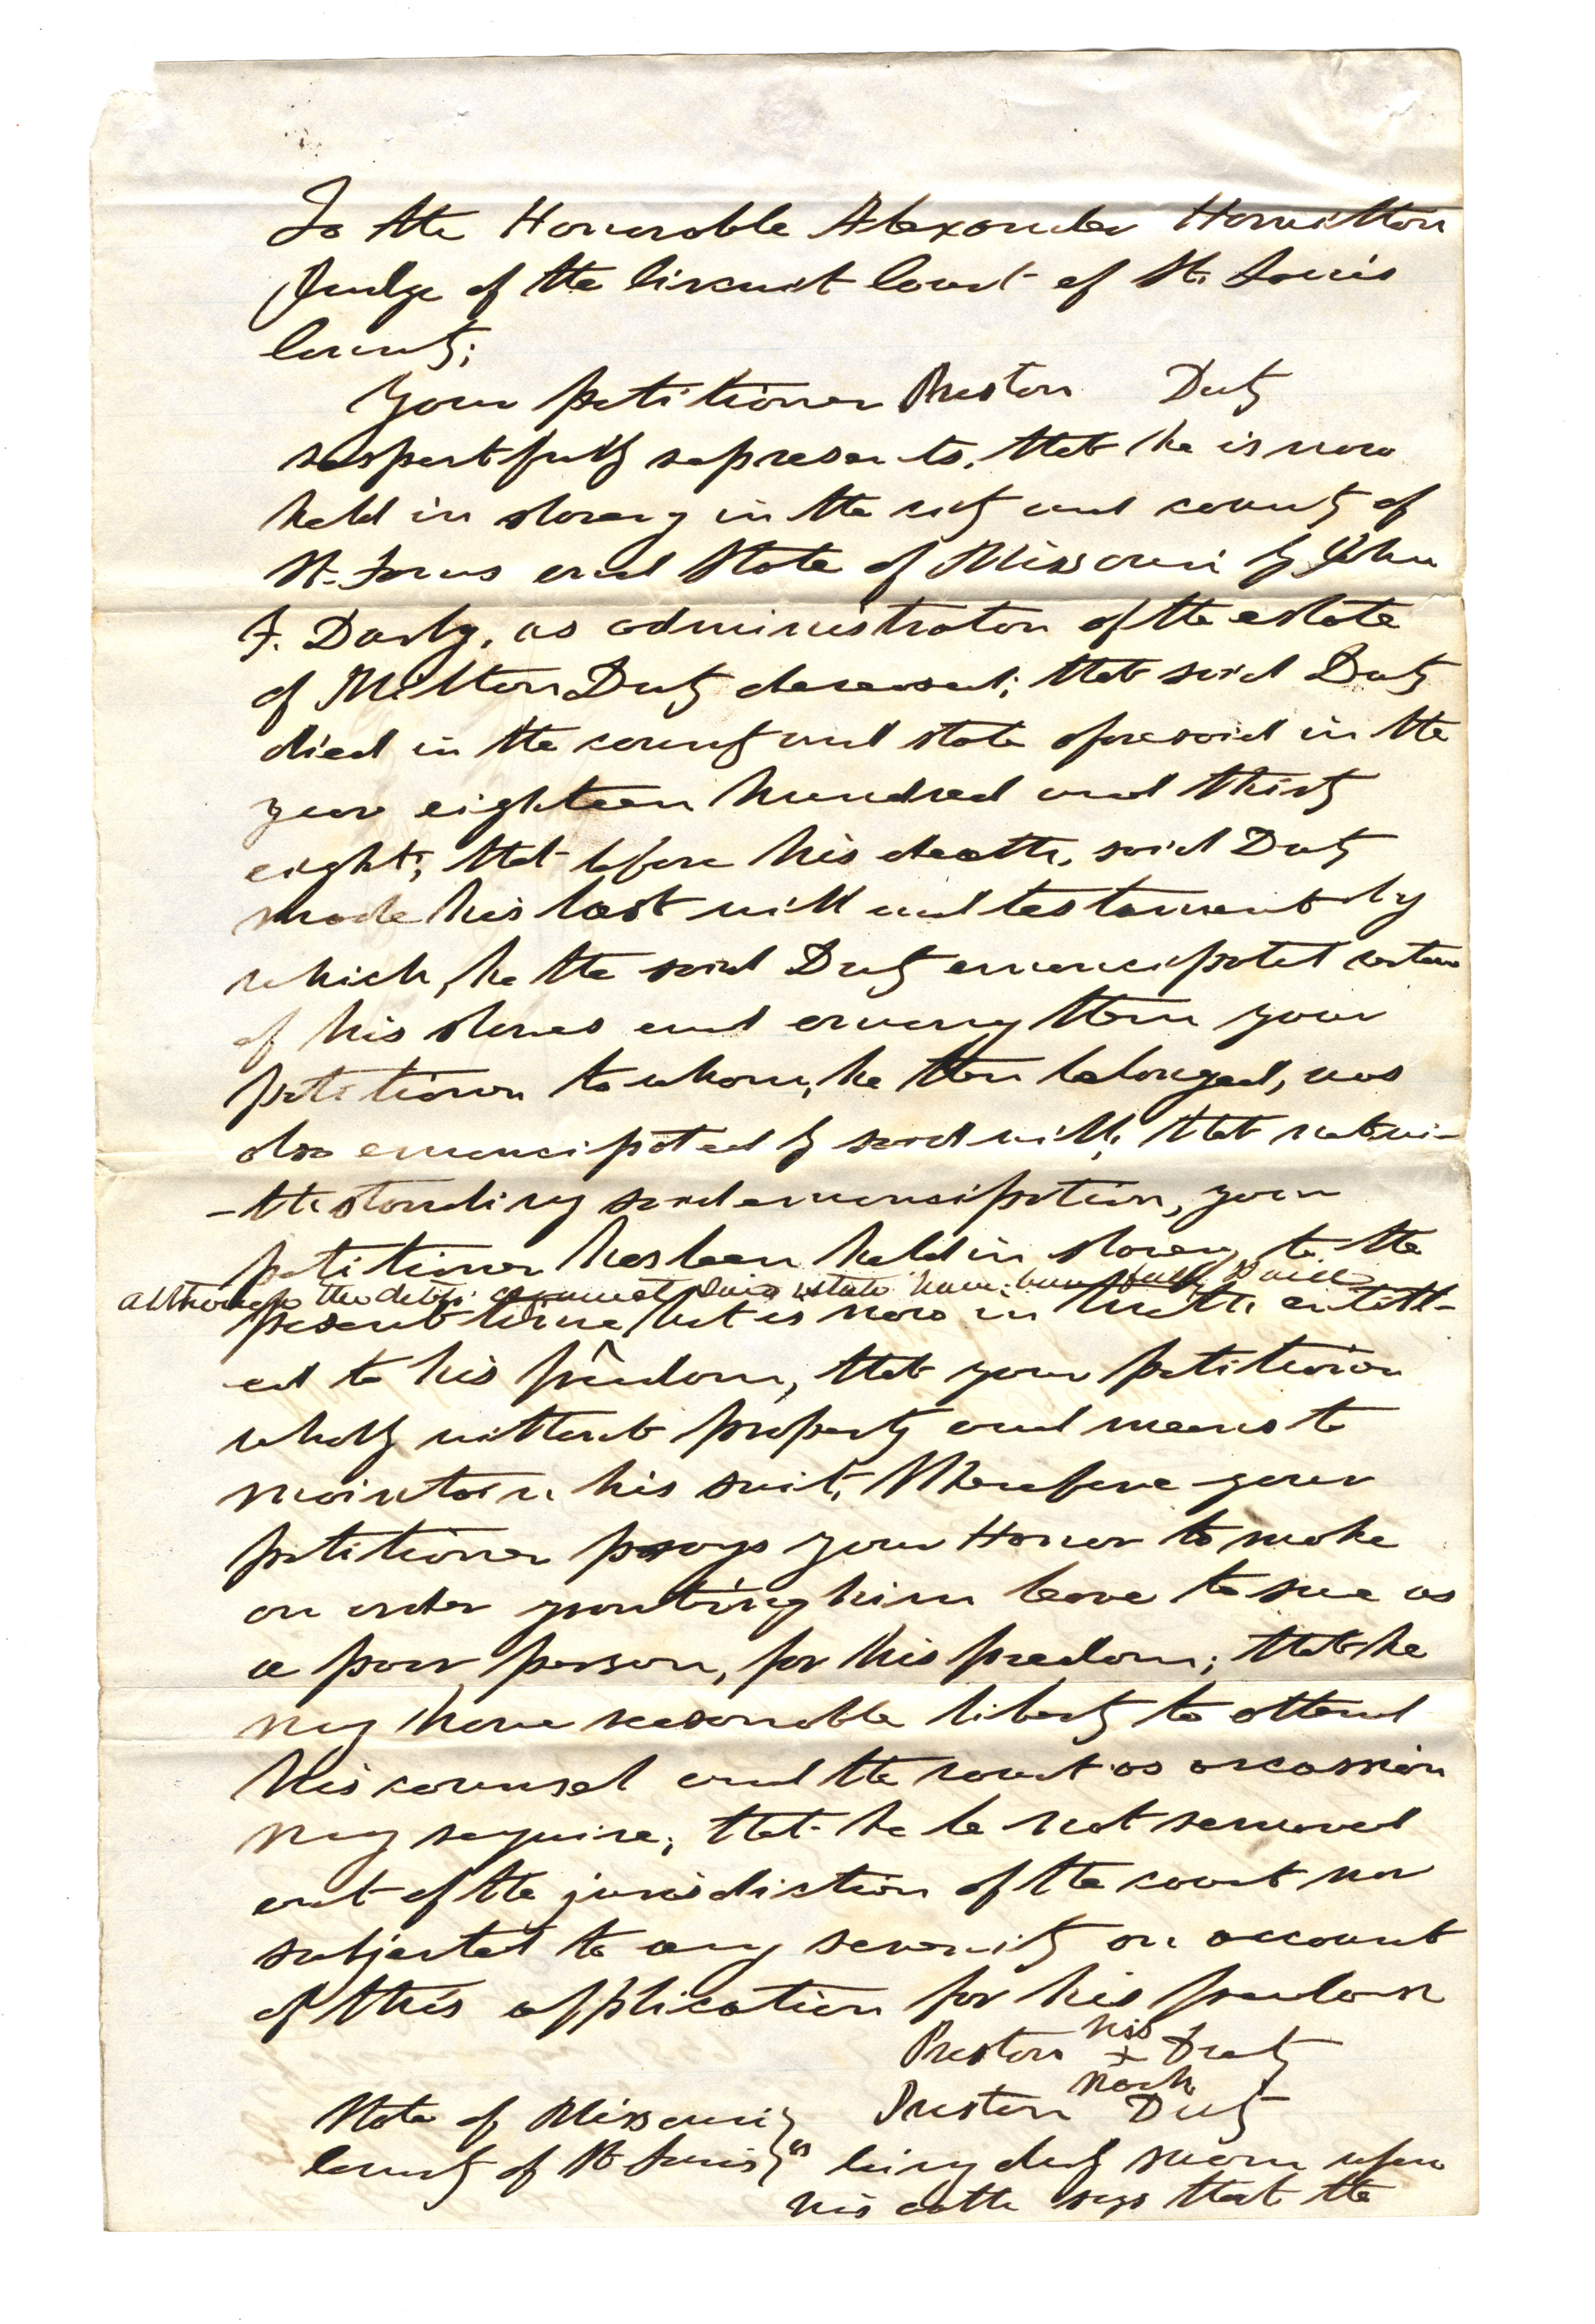 To the Honorable Alexander Hamilton
Judge of the Circuit Court of St. Louis
County;
Your petitioner Preston Duty
respectfully represents, that he is now
held in slavery in the city and county of
St. Louis and State of Missouri by John
F. Darby, as administrator of the estate
of Milton Duty deceased; that said Duty
died in the county and state aforesaid in the
year eighteen hundred and thirty
eight; that before his death, said Duty
made his last will and testament by
which, he the said Duty emancipated certain
of his slaves and among them your
petitioner to whom, he then belonged, was
also emancipated by said will; that notwi-
-thstanding said emancipation, your
petitioner has been held in slavery to the
although the debts against said estate have been fully paid
present time, but is now in truth entitl-
ed to his freedom, that your petitioner
wholly without property and means to
maintain his suit, Wherefore your
petitioner prays your Honor to make
an order granting him leave to sue as
a poor person, for his freedom; that he
may have reasonable liberty to attend
his counsel and the court as occassion
may require; that he be not removed
out of the jurisdiction of the court nor
subjected to any severity on account
of this application for his freedom
his
Preston + Duty
mark
State of Missouri } Preston Duty
County of St Louis } ss being duly sworn upon
his oath says that the